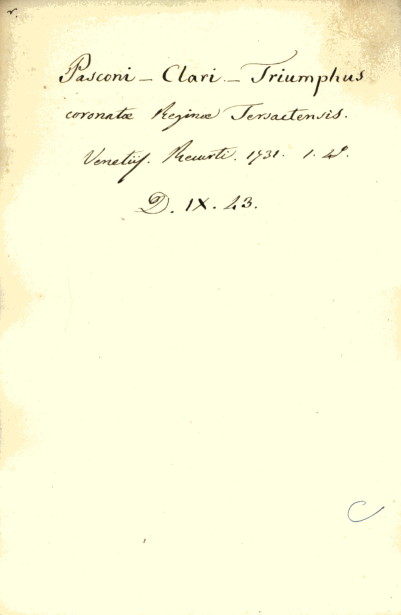 r.
Pasconi - Clari - Triumphus
coronatæ Reginæ Tersactensis.
Venetiis. Recurti. 1731. 1. 4º.
D. IX. 43.
C